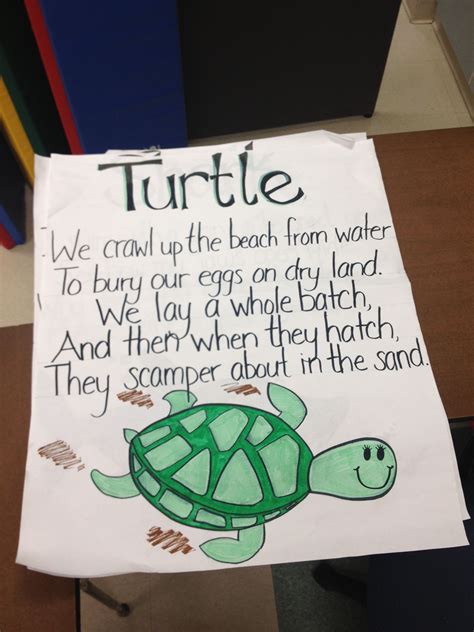 Turtle
We crawl up the beach from water
To bury our eggs on dry land.
We lay a whole batch,
And then when they hatch,
They scamper about in the sand.